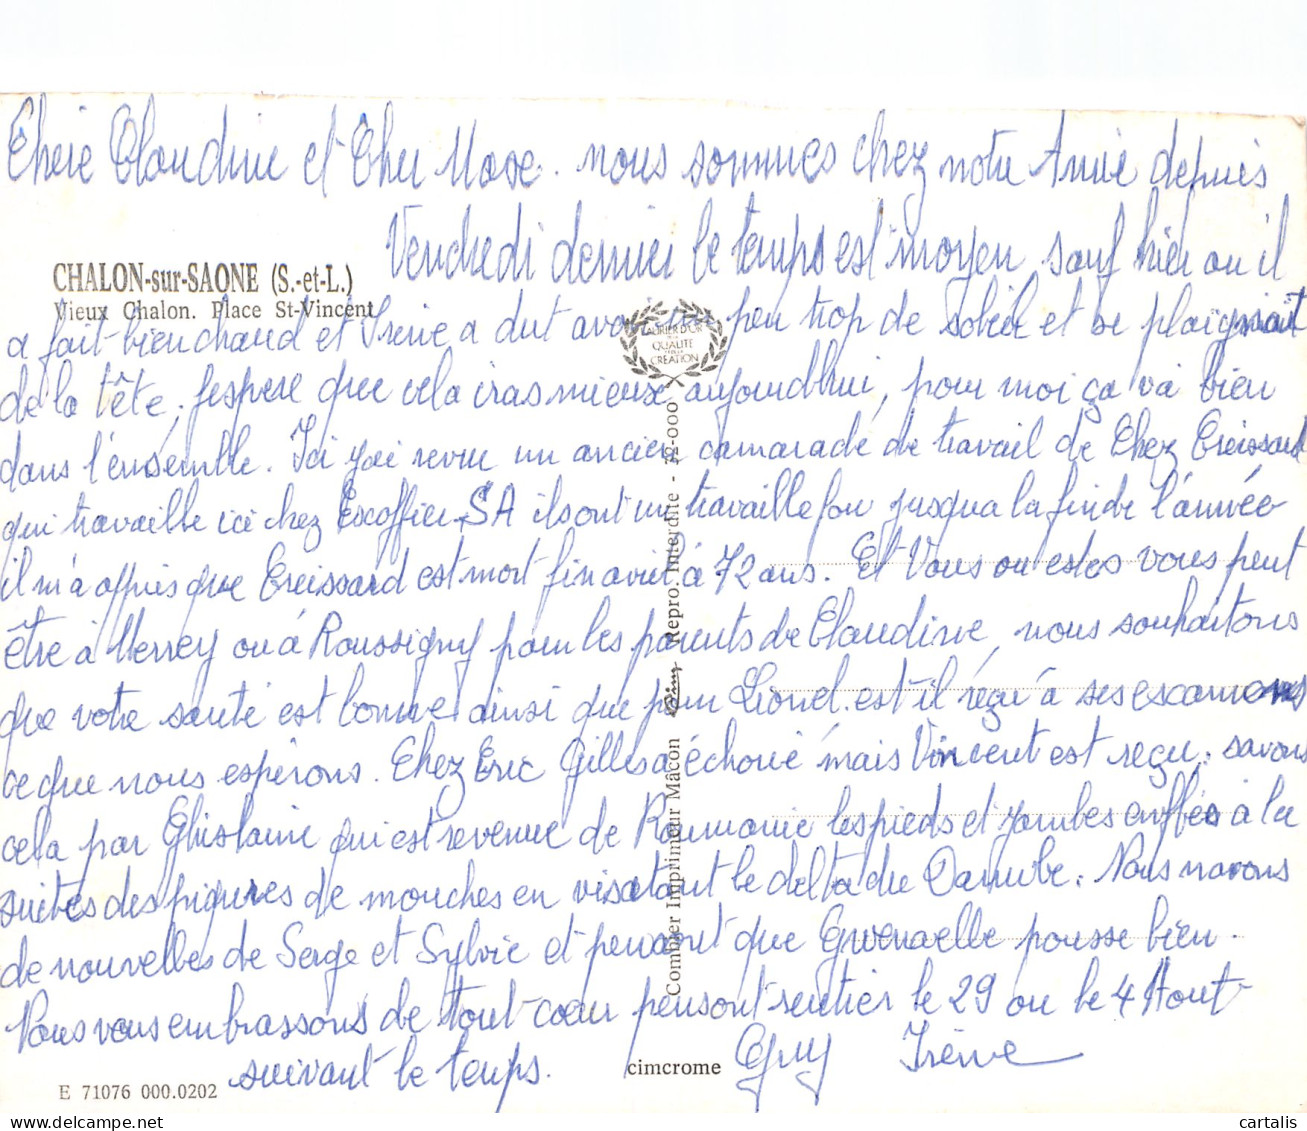 Chère Claudine et Cher Marc. nous sommes chez notre Amie depuis
Vendredi dernier le temps est moyen sauf hier ou il
CHALON-sur-SAONE (S.-et-L.)
Vieux Chalon. Place St-Vincent
a fait bien chaud et Irène a dut avoir un peu trop de soleil et se plaignait
LAURIER D'OR
DE LA
QUALITÉ
ET DE LA
CRÉATION
de la tête. j'espere que cela iras mieux aujourdhui, pour moi ça va bien
dans l'ensemble. Ici j'ai revu un ancien camarade de travail de Chez Creissard
qui travaille ici chez Escoffier SA ils ont un travaille fou jusqua la fin de l'année
il m'a appris que Creissard est mort fin avril à 72 ans. Et Vous ou estes vous peut
être à Merrey ou à Roussigny pour les parents de Claudine, nous souhaitons
que votre santé est bonne ainsi que pour Lionel. est-il reçu à ses examens
ce que nous espérons. Chez Eric Gilles a échoué mais Vincent est reçu. savons
cela par Ghislaine qui est revenue de Roumanie les pieds et jambes enflées à la
suites des piqures de mouches en visitant le delta du Danube. Nous navons
de nouvelles de Serge et Sylvie et pensont que Gwenaelle pousse bien.
Nous vous embrassons de tout cœur pensont rentrer le 29 ou le 4 Aout
suivant le temps. Guy Irène
Combier Imprimeur Mâcon Cim Repro. Interdite - 72-000
cimcrome
E 71076 000.0202
www.cartalis.com